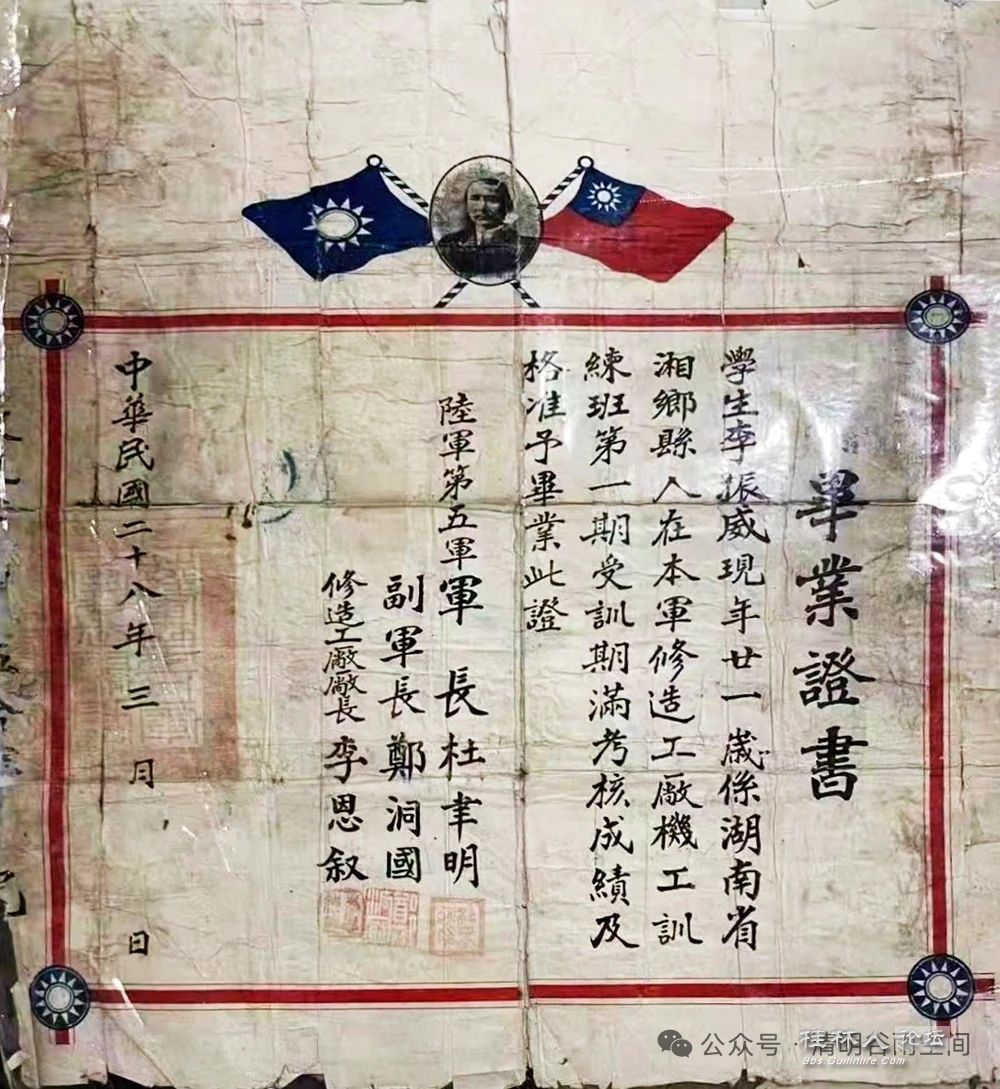 畢業證書
學生李振威現年廿一歲係湖南省
湘鄉縣人在本軍修造工廠機工訓
練班第一期受訓期滿考核成績及
格准予畢業此證
陸軍第五軍軍長杜聿明
副軍長鄭洞國
修造工廠廠長李恩叙
中華民國二十八年三月 日
公众号·清明谷雨空间
桂林人论坛
Bbs.Guilinlife.com